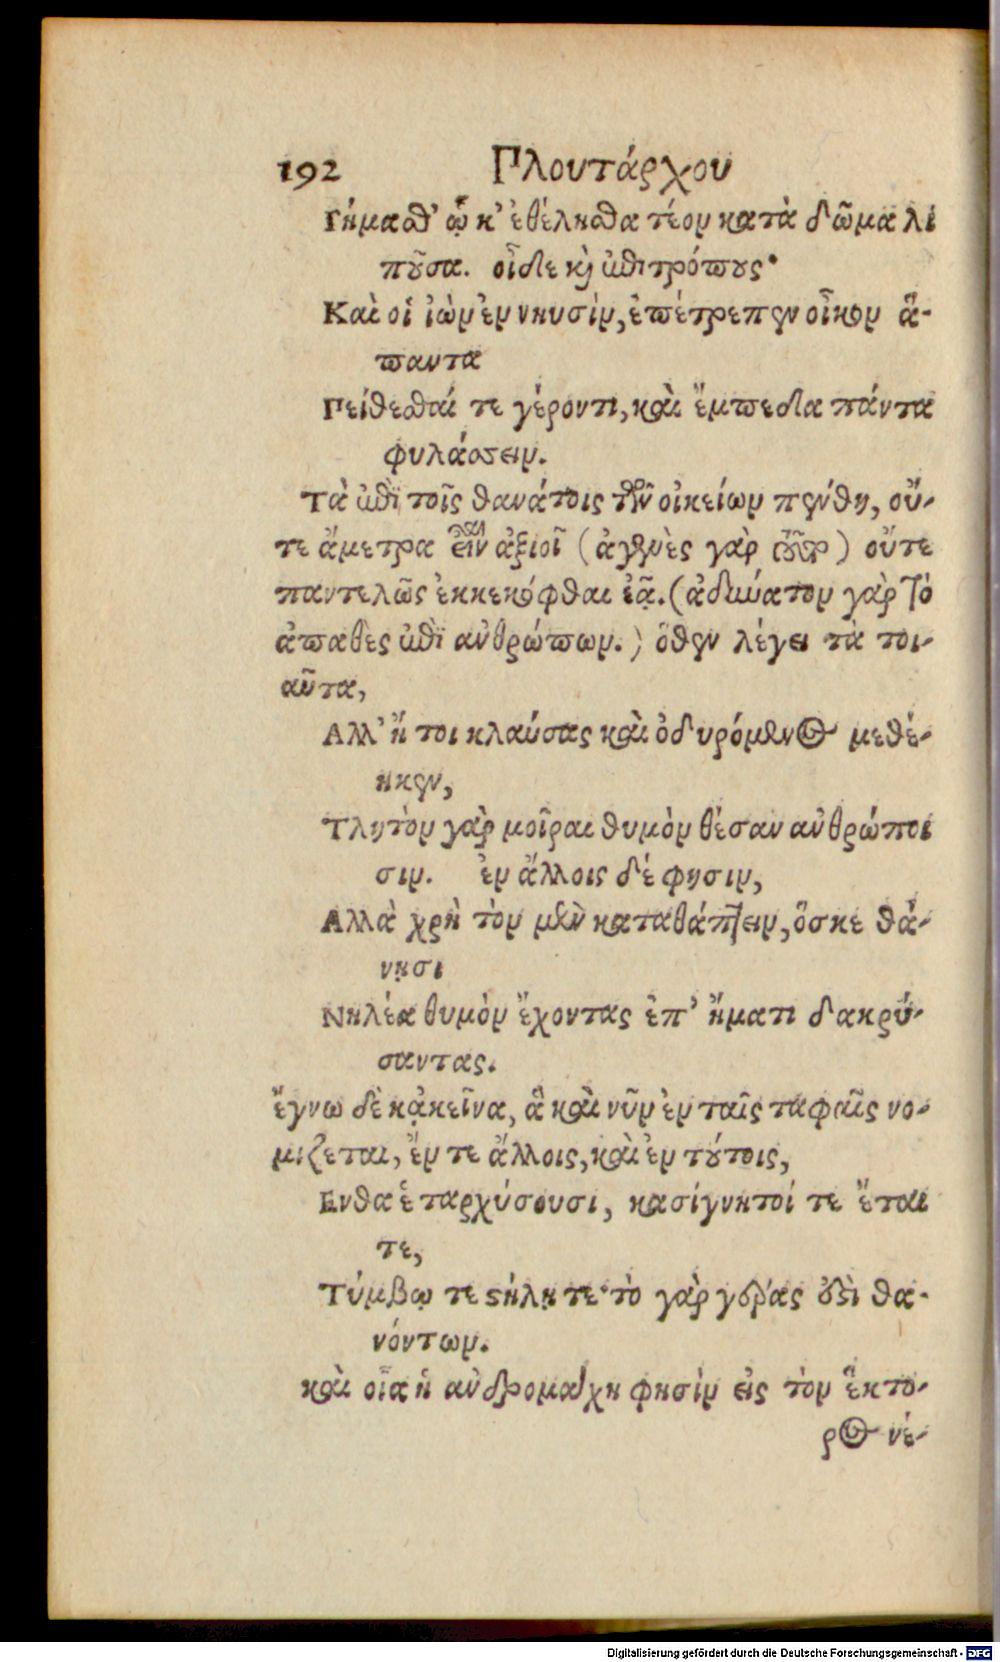 192 Πλουτάρχου
Γήμασθ’ ᾧ κ’ ἐθέλησθα τέον κατὰ δῶμα λι
ποῦσα. οἶδε καὶ ἐπιτρόπους·
Καὶ οἱ ἰὼν ἐν νηυσὶν, ἐπέτρεπεν οἶκον ἅ-
παντα
Πείθεσθαί τε γέροντι, καὶ ἔμπεδα πάντα
φυλάσσειν.
Τὰ ἐπὶ τοῖς θανάτοις τῶν οἰκείων πένθη, οὔ-
τε ἄμετρα εἶναι ἀξιοῖ (ἀγενὲς γὰρ) οὔτε
παντελῶς ἐκκεκόφθαι ἐᾷ. (ἀδύνατον γὰρ τὸ
ἀπαθὲς ἐπὶ ἀνθρώπων.) ὅθεν λέγει τὰ τοι-
αῦτα,
Αλλ’ ἤ τοι κλαύσας καὶ ὀδυρόμενος μεθέ-
ηκεν,
Τλητὸν γὰρ μοῖραι θυμὸν θέσαν ἀνθρώποι
σιν. ἐν ἄλλοις δέ φησιν,
Αλλὰ χρὴ τὸν μὲν καταθάπτειν, ὅσκε θά-
νῃσι
Νηλέα θυμὸν ἔχοντας ἐπ’ ἤματι δακρύ-
σαντας.
ἔγνω δὲ κᾀκεῖνα, ἃ καὶ νῦν ἐν ταῖς ταφαῖς νο-
μιζεται, ἔν τε ἄλλοις, καὶ ἐν τούτοις,
Ενθα ἑ ταρχύσουσι, κασίγνητοί τε ἔται
τε,
Τύμβῳ τε στήλῃ τε· τὸ γὰρ γέρας ἐστὶ θα-
νόντων.
καὶ οἷα ἡ ἀνδρομάχη φησὶν εἰς τὸν ἕκτο-
ρος νέ-
Digitalisierung gefördert durch die Deutsche Forschungsgemeinschaft - DFG